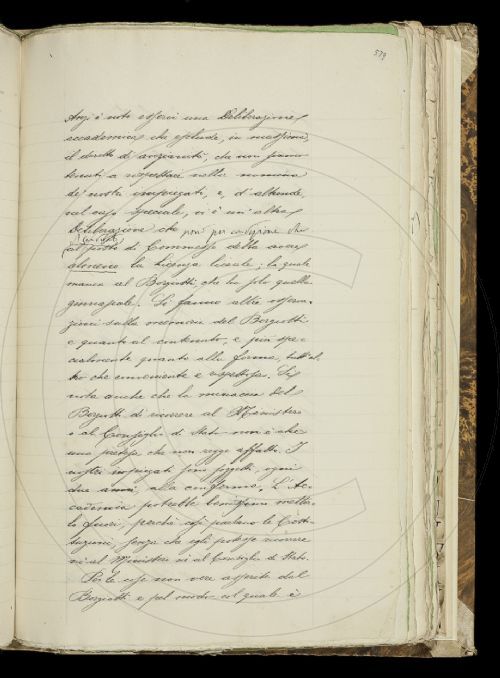 579
Anzi è noto esserci una Deliberazione
accademica che esclude, in massima,
il diritto di anzianità, che non siamo
tenuti a rispettare nella nomina
de' nostri impiegati, e, d'altronde,
nel caso speciale, vi è un'altra
Deliberazione che pone per condizione che
al posto di Commesso debba avere
almeno la licenza liceale; la quale
manca al Borgiotti che ha solo quella
ginnasiale. Si fanno altre osserva-
zioni sulla memoria del Borgiotti
e quanto al contenuto, e più spe-
cialmente quanto alla forma, tutt'al-
tro che conveniente e rispettosa. Si
nota anche che la minaccia del
Borgiotti di ricorrere al Ministero
o al Consiglio di Stato non è che
una pretesa che non regge affatto. I
nostri impiegati sono soggetti, ogni
due anni, alla conferma. L'Ac-
cademia potrebbe benissimo metter-
lo fuori, perché così parlano le Costi-
tuzioni, senza che egli potesse ricorrere
nè al Ministero nè al Consiglio di Stato.
Per le cose non vere asserite dal
Borgiotti e pel modo col quale è